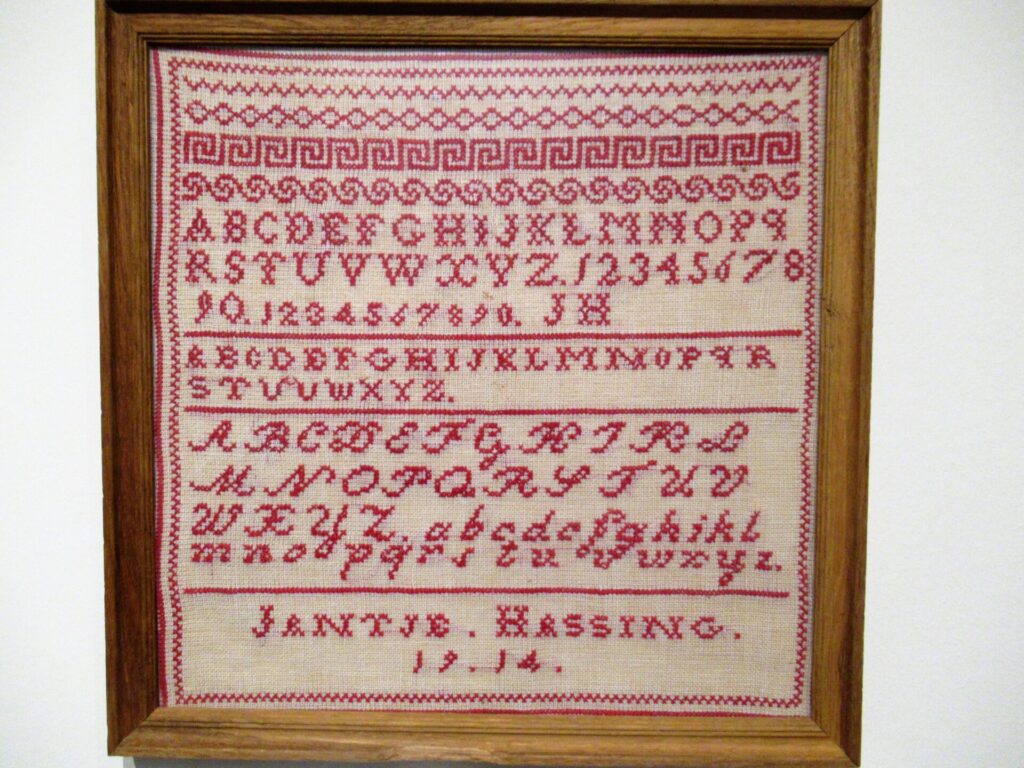 ABCDEFGHIJKLMNOPQ
RSTUVWXYZ.12345678
90.1234567890. JH
ABCDEFGHIJKLMNOPQR
STUVUWXYZ.
ABCDEFGHIKL
MNOPQRSTUV
WXYZ.abcdefghikl
mnopqrstuvwxyz.
JANTJE. HASSING.
19.14.